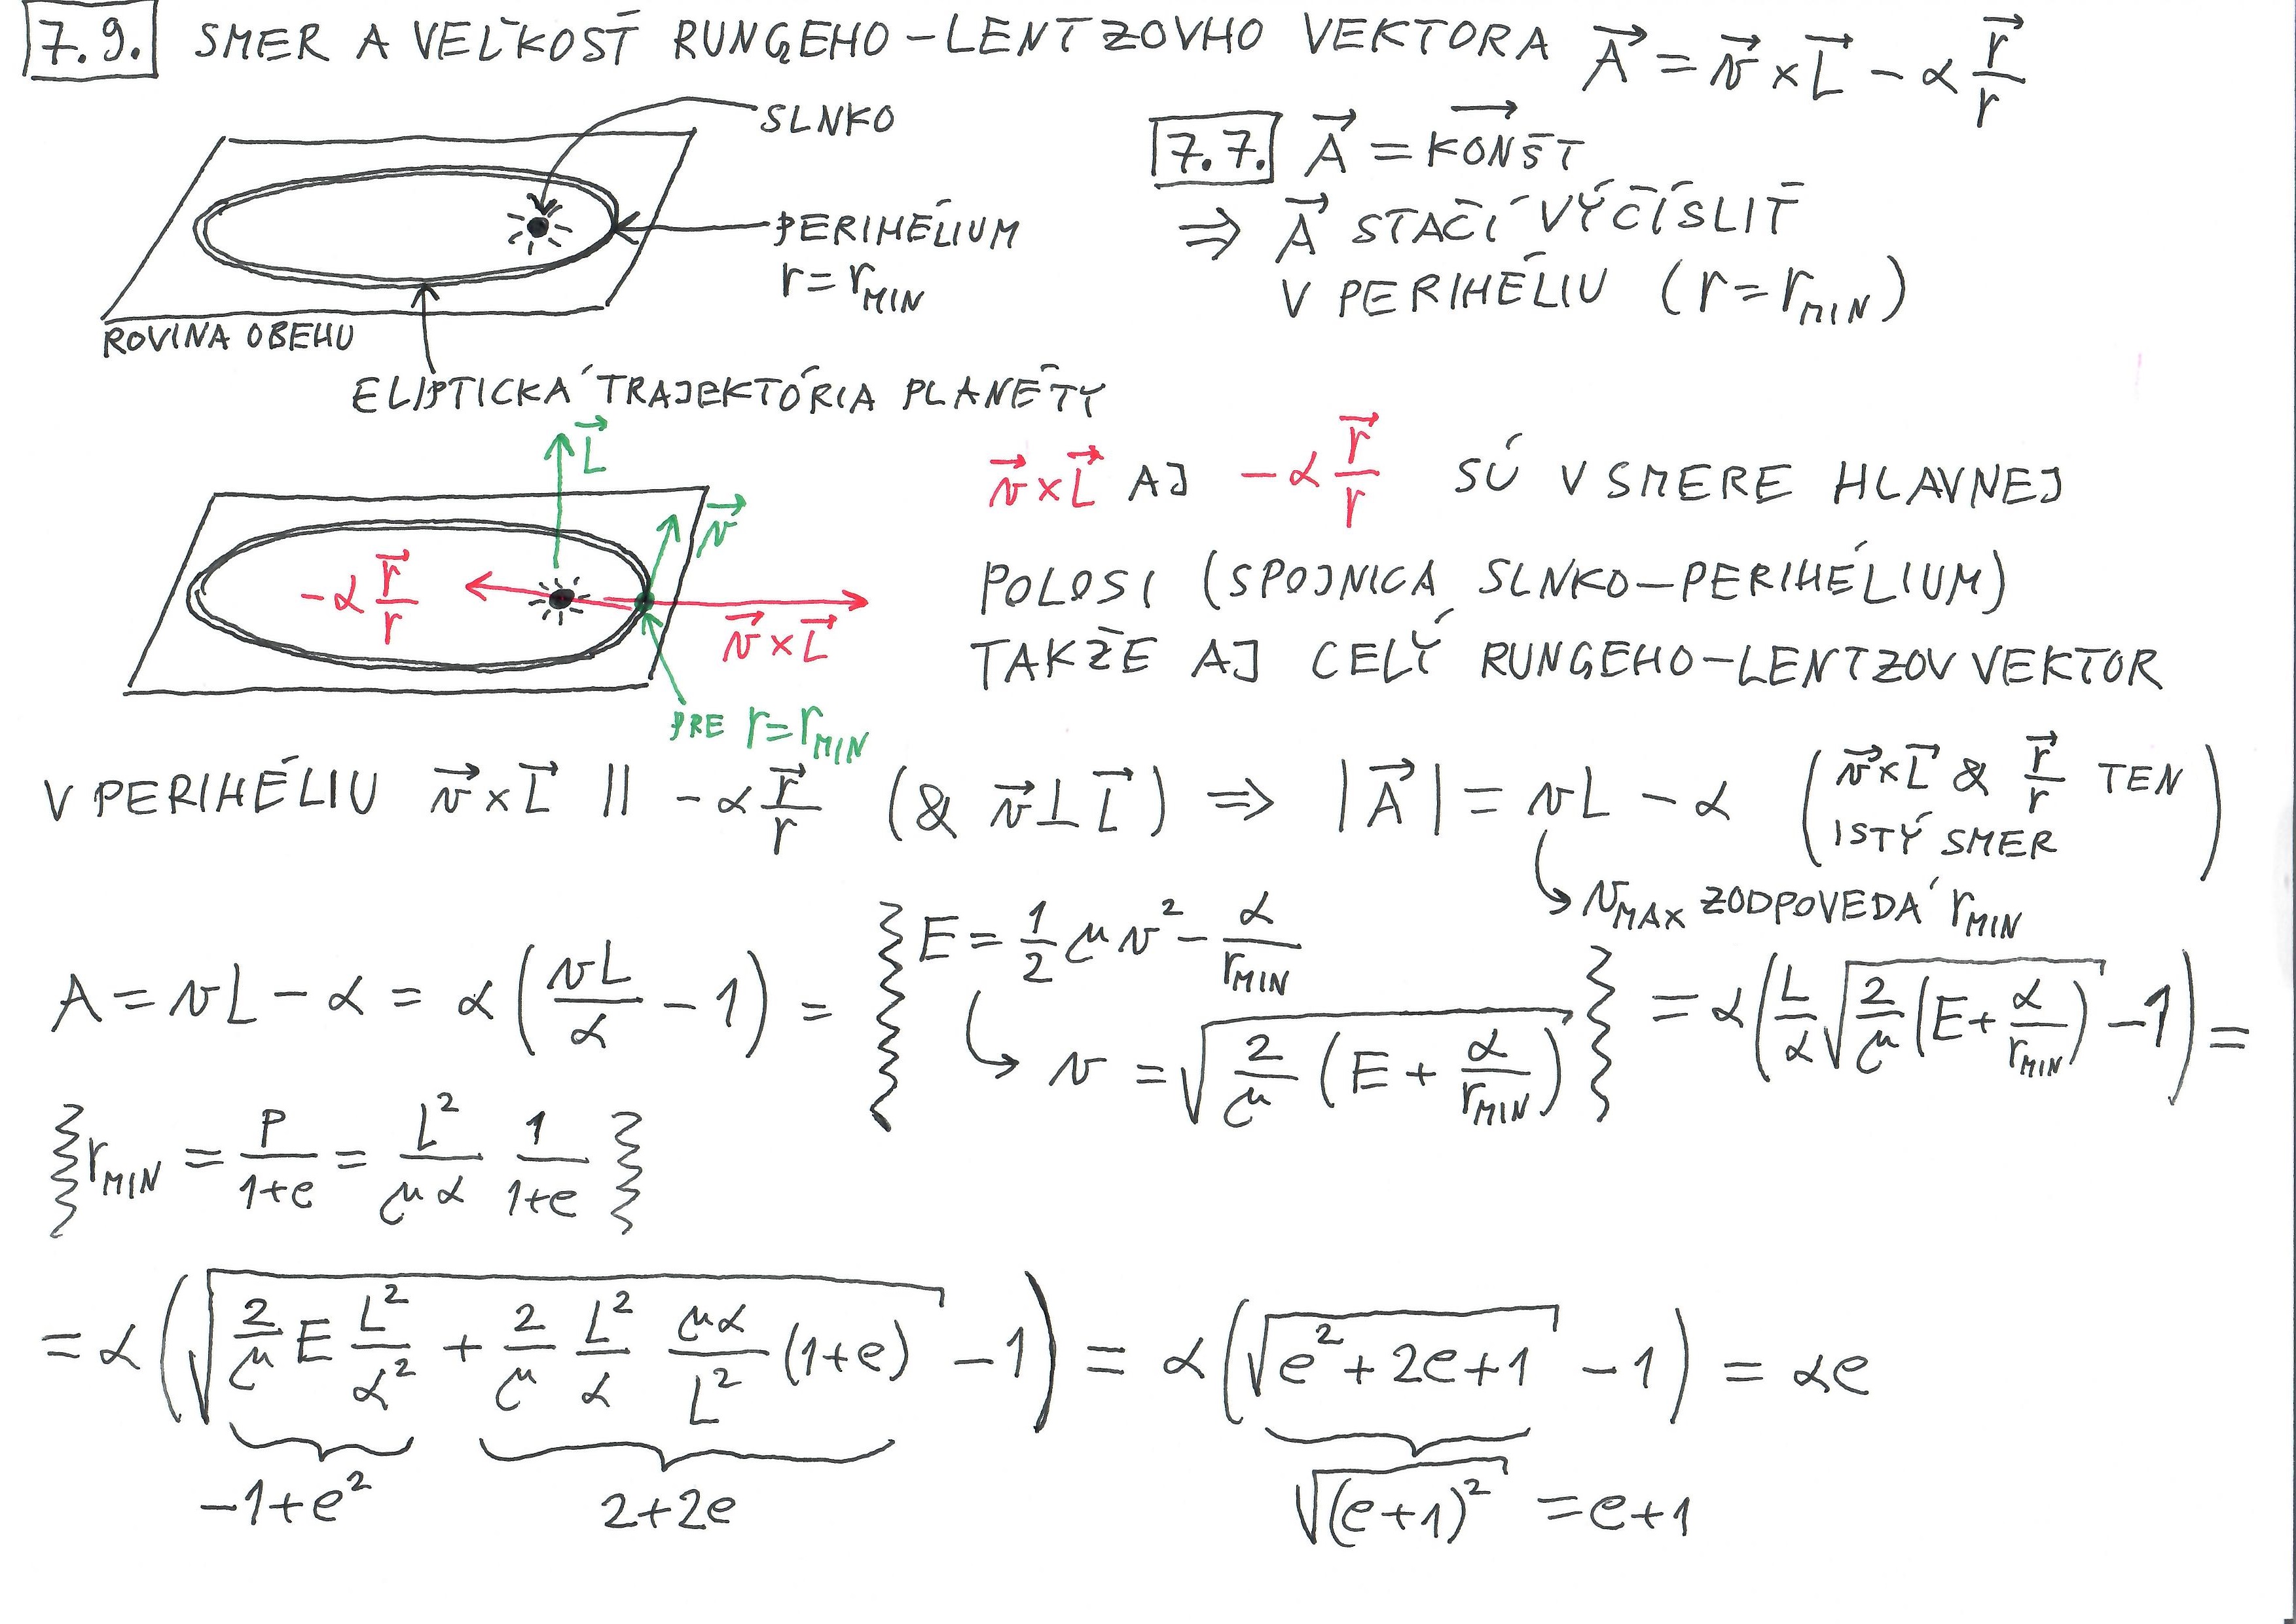 7.9. SMER A VEĽKOSŤ RUNGEHO-LENTZOVHO VEKTORA $\vec{A} = \vec{v} \times \vec{L} - \alpha \frac{\vec{r}}{r}$
SLNKO
PERIHÉLIUM
r = r_MIN
ROVINA OBEHU
ELIPTICKÁ TRAJEKTÓRIA PLANÉTY
7.7. $\vec{A} = \overrightarrow{KONŠT}$
⇒ $\vec{A}$ STAČÍ VÝČÍSLIŤ
V PERIHÉLIU (r = r_MIN)
$\vec{L}$
$\vec{v}$
$-\alpha \frac{\vec{r}}{r}$
$\vec{v} \times \vec{L}$
PRE r = r_MIN
$\vec{v} \times \vec{L}$ AJ $-\alpha \frac{\vec{r}}{r}$ SÚ V SMERE HLAVNEJ
POLOSI (SPOJNICA SLNKO-PERIHÉLIUM)
TAKŽE AJ CELÝ RUNGEHO-LENTZOV VEKTOR
V PERIHÉLIU $\vec{v} \times \vec{L} \parallel -\alpha \frac{\vec{r}}{r}$ (& $\vec{v} \perp \vec{L}$) ⇒ $|\vec{A}| = vL - \alpha$ ($\vec{v} \times \vec{L}$ & $\frac{\vec{r}}{r}$ TEN
ISTÝ SMER)
v_MAX ZODPOVEDÁ r_MIN
$A = vL - \alpha = \alpha \left( \frac{vL}{\alpha} - 1 \right) =$
$E = \frac{1}{2} \mu v^2 - \frac{\alpha}{r_{MIN}}$
$v = \sqrt{\frac{2}{\mu} \left( E + \frac{\alpha}{r_{MIN}} \right)}$
$= \alpha \left( \frac{L}{\alpha} \sqrt{\frac{2}{\mu} \left( E + \frac{\alpha}{r_{MIN}} \right)} - 1 \right) =$
$r_{MIN} = \frac{P}{1+e} = \frac{L^2}{\mu \alpha} \frac{1}{1+e}$
$= \alpha \left( \sqrt{\frac{2}{\mu} E \frac{L^2}{\alpha^2} + \frac{2}{\mu} \frac{L^2}{\alpha} \frac{\mu \alpha}{L^2} (1+e)} - 1 \right) = \alpha \left( \sqrt{e^2 + 2e + 1} - 1 \right) = \alpha e$
$-1 + e^2$
$2 + 2e$
$\sqrt{(e+1)^2} = e + 1$